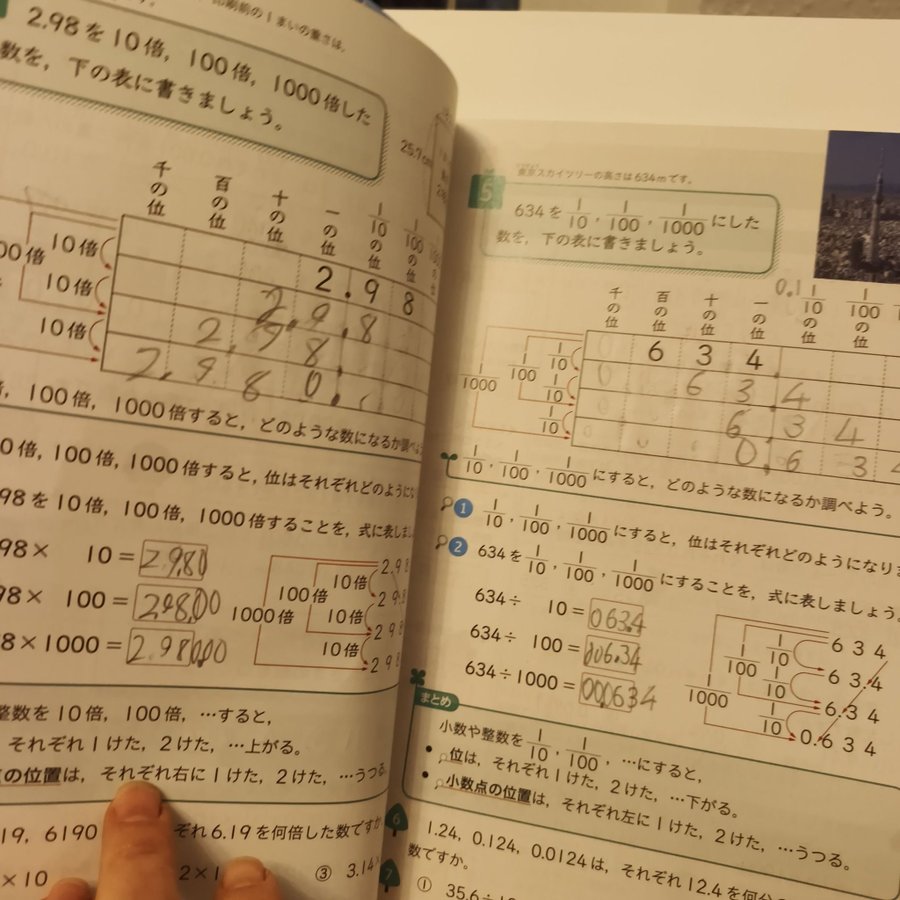 印刷前の1まいの重さは,
2.98を10倍, 100倍, 1000倍した
数を, 下の表に書きましょう。
25.7cm
千の位 百の位 十の位 一の位 1/10の位 1/100の位
2.98
10倍
10倍
10倍
100倍, 1000倍すると, どのような数になるか調べよ
0倍, 100倍, 1000倍すると, 位はそれぞれどのように
98を10倍, 100倍, 1000倍することを, 式に表しま
98× 10=
98× 100=
8×1000=
10倍
100倍
10倍
1000倍
10倍
整数を10倍, 100倍, …すると,
それぞれ1けた, 2けた, …上がる。
の位置は, それぞれ右に1けた, 2けた, …うつる
19, 6190
ぞれ6.19を何倍した数ですか
×10
2×1
③ 3.14
5
東京スカイツリーの高さは634mです。
634を1/10, 1/100, 1/1000にした
数を, 下の表に書きましょう。
0.1
千の位 百の位 十の位 一の位 1/10の位 1/100の位
634.
63.4
6.34
0.634
1/10
1/100
1/10
1/1000
1/10
1/10, 1/100, 1/1000にすると, どのような数になるか調べよう。
1 1/10, 1/100, 1/1000にすると, 位はそれぞれどのようになり
2 634を1/10, 1/100, 1/1000にすることを, 式に表しましょう。
634÷ 10=063.4
634÷ 100=006.34
634÷1000=000.634
634
1/10
63.4
1/100
1/10
6.34
1/1000
1/10
0.634
まとめ
小数や整数を1/10, 1/100, …にすると,
・位は, それぞれ1けた, 2けた, …下がる。
・小数点の位置は, それぞれ左に1けた, 2けた, …うつる。
6
1.24, 0.124, 0.0124は, それぞれ12.4を何分
数ですか。
7
① 35.6÷10